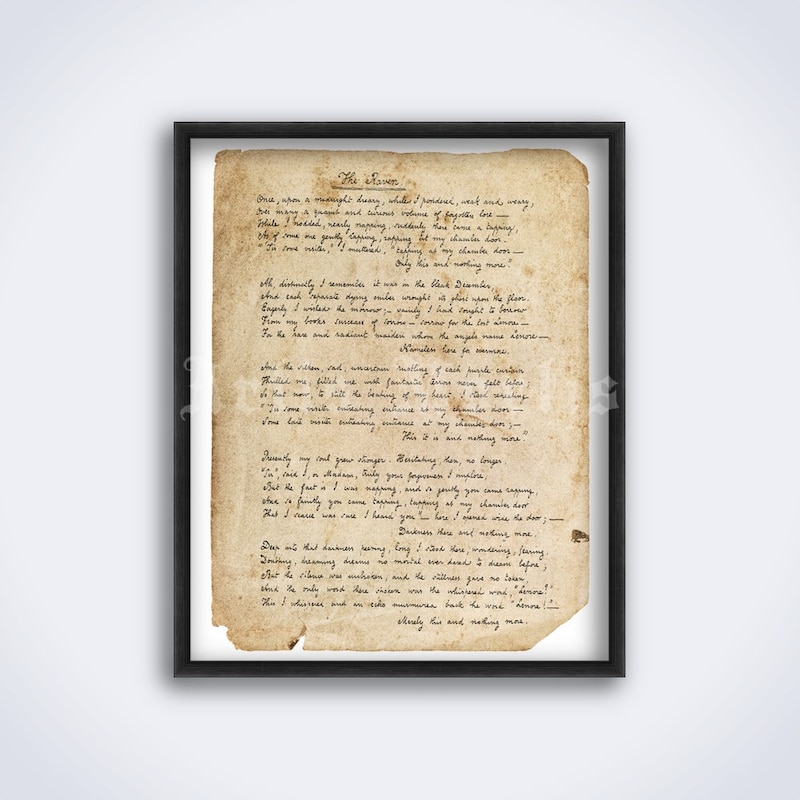 The Raven.
Once, upon a midnight dreary, while I pondered, weak and weary,
Over many a quaint and curious volume of forgotten lore —
While I nodded, nearly napping, suddenly there came a tapping,
As of some one gently tapping, rapping at my chamber door.
"'Tis some visiter," I muttered, "tapping at my chamber door —
Only this and nothing more."
Ah, distinctly I remember it was in the bleak December,
And each separate dying ember wrought its ghost upon the floor.
Eagerly I wished the morrow; — vainly I had sought to borrow
From my books surcease of sorrow — sorrow for the lost Lenore —
For the rare and radiant maiden whom the angels name Lenore —
Nameless here for evermore.
And the silken, sad, uncertain rustling of each purple curtain
Thrilled me, filled me with fantastic terrors never felt before;
So that now, to still the beating of my heart, I stood repeating
"'Tis some visiter entreating entrance at my chamber door —
Some late visiter entreating entrance at my chamber door; —
This it is and nothing more."
Presently my soul grew stronger. Hesitating, then, no longer,
"Sir," said I, or Madam, truly your forgiveness I implore;
But the fact is I was napping, and so gently you came rapping,
And so faintly you came tapping, tapping at my chamber door
That I scarce was sure I heard you" — here I opened wide the door; —
Darkness there and nothing more.
Deep into that darkness peering, long I stood there, wondering, fearing,
Doubting, dreaming dreams no mortal ever dared to dream before;
But the silence was unbroken, and the stillness gave no token,
And the only word there spoken was the whispered word, "Lenore!"
This I whispered and an echo murmured back the word "Lenore!" —
Merely this and nothing more.